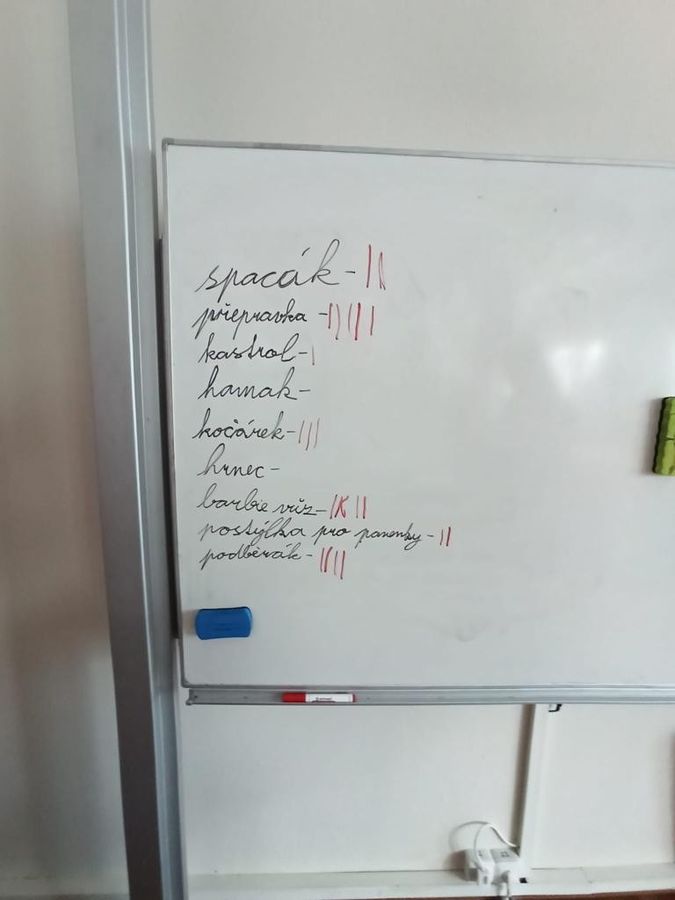 spacák - ||
přepravka - |||||
kastrol - |
hamak -
kočárek - |||
hrnec -
barbie vůz - |||||
postýlka pro panenky - ||
podběrák - ||||